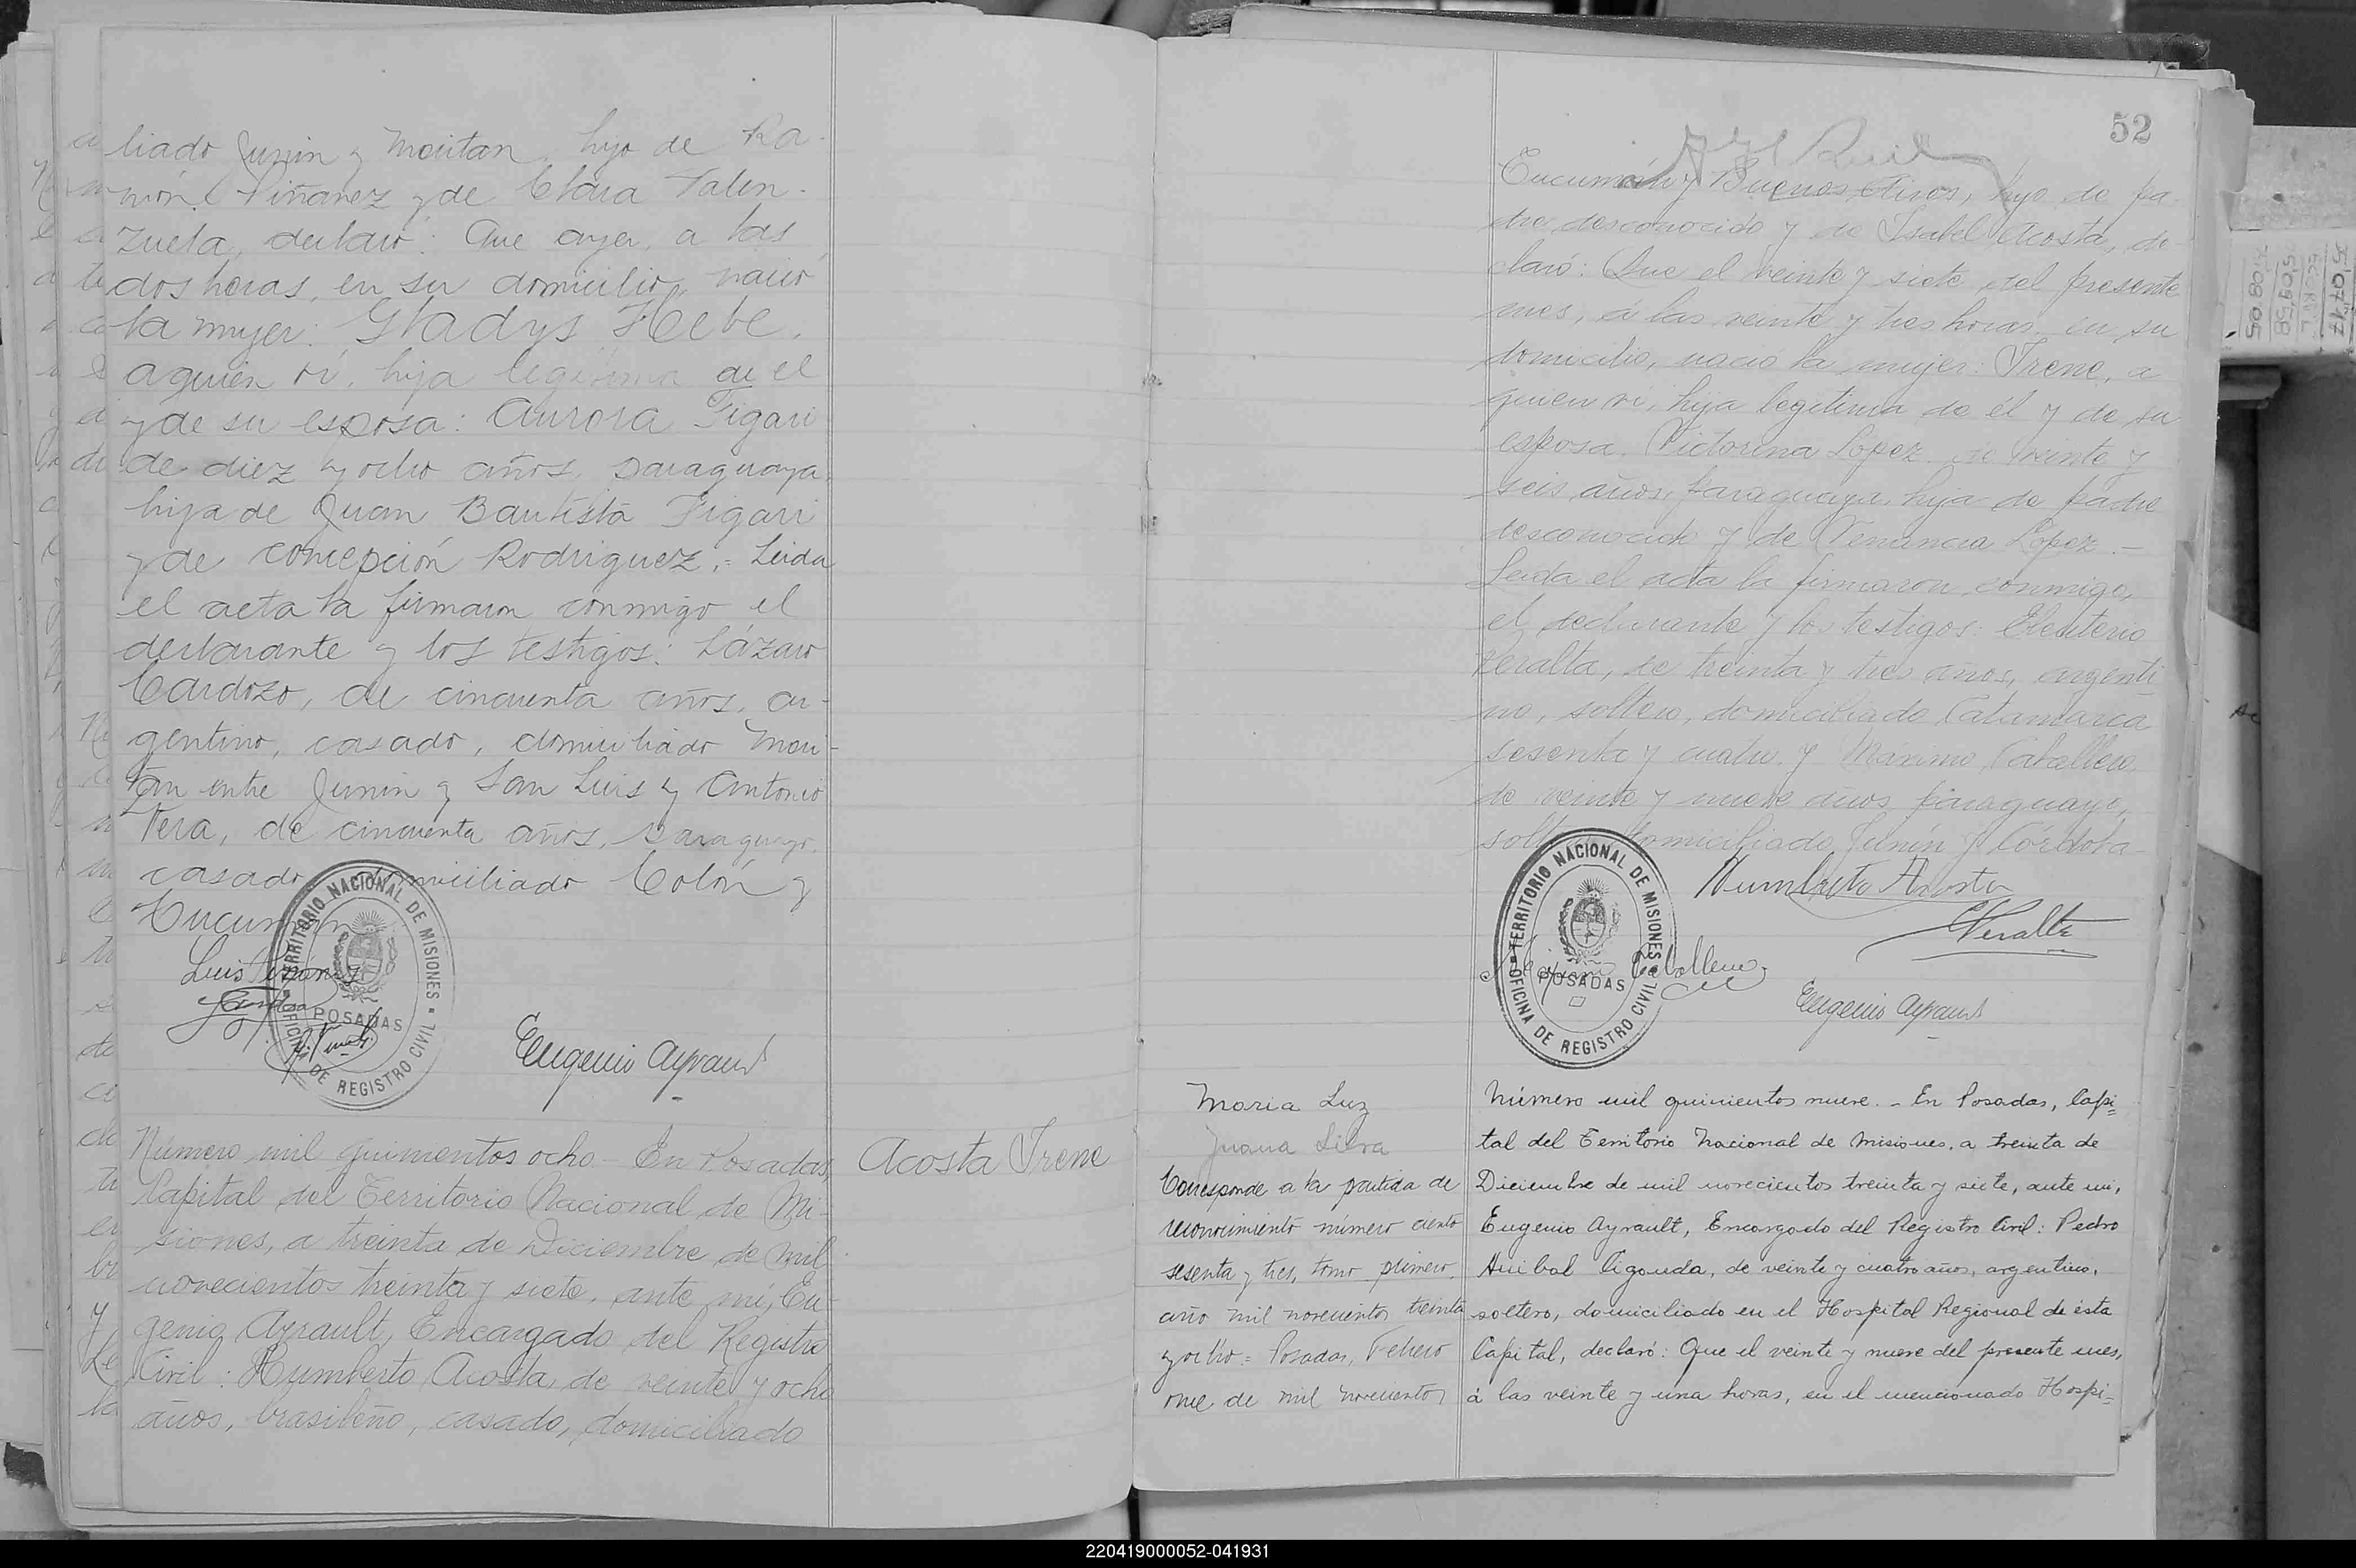 liado Junin y Moritan, hijo de Ra-
món Piñanez y de Clara Valen-
zuela, declaró: Que ayer, a las
dos horas, en su domicilio, nació
la mujer: Gladys Hebe,
a quien ví, hija legítima de el
y de su esposa: Aurora Figari
de diez y ocho años, paraguaya,
hija de Juan Bautista Figari
y de Concepción Rodriguez.= Leida
el acta la firmaron conmigo el
declarante y los testigos: Lázaro
Cardozo, de cincuenta años, ar-
gentino, casado, domiciliado Mori-
tan entre Junin y San Luis y Antonio
Vera, de cincuenta años, paraguayo,
casado, domiciliado Colón y
Tucumán
Luis Piñanez
TERRITORIO NACIONAL DE MISIONES
POSADAS
OFICINA DE REGISTRO CIVIL
Eugenio Ayrault
Número mil quinientos ocho - En Posadas,
Capital del Territorio Nacional de Mi-
siones, a treinta de Diciembre de mil
novecientos treinta y siete, ante mí, Eu-
genio Ayrault, Encargado del Registro
Civil: Humberto Acosta, de veinte y ocho
años, brasileño, casado, domiciliado
Acosta Irene
52
Tucumán y Buenos Aires, hijo de pa-
dre desconocido y de Isabel Acosta, de-
claró: Que el veinte y siete del presente
mes, á las veinte y tres horas, en su
domicilio, nació la mujer: Irene, a
quien ví, hija legítima de él y de su
esposa Victorina Lopez de treinta y
seis años, paraguaya, hija de padre
desconocido y de Venancia López.-
Leida el acta la firmaron conmigo,
el declarante y los testigos: Eleuterio
Peralta, de treinta y tres años, argenti-
no, soltero, domiciliado Catamarca
sesenta y cuatro y Máximo Caballero,
de veinte y nueve años, paraguayo,
domiciliado Junín y Córdoba-
Humberto Acosta
EPeralta
Máximo Caballero
TERRITORIO NACIONAL DE MISIONES
POSADAS
OFICINA DE REGISTRO CIVIL
Eugenio Ayrault
Maria Luz
Juana Silva
Corresponde a la partida de
reconocimiento número ciento
sesenta y tres, tomo primero,
año mil novecientos treinta
y ocho = Posadas, Febrero
once de mil novecientos
Número mil quinientos nueve. - En Posadas, Capi=
tal del Territorio Nacional de Misiones, a treinta de
Diciembre de mil novecientos treinta y siete, ante mi,
Eugenio Ayrault, Encargado del Registro Civil: Pedro
Anibal Cigonda, de veinte y cuatro años, argentino,
soltero, domiciliado en el Hospital Regional de ésta
Capital, declaró: Que el veinte y nueve del presente mes,
á las veinte y una horas, en el mencionado Hospi=
220419000052-041931